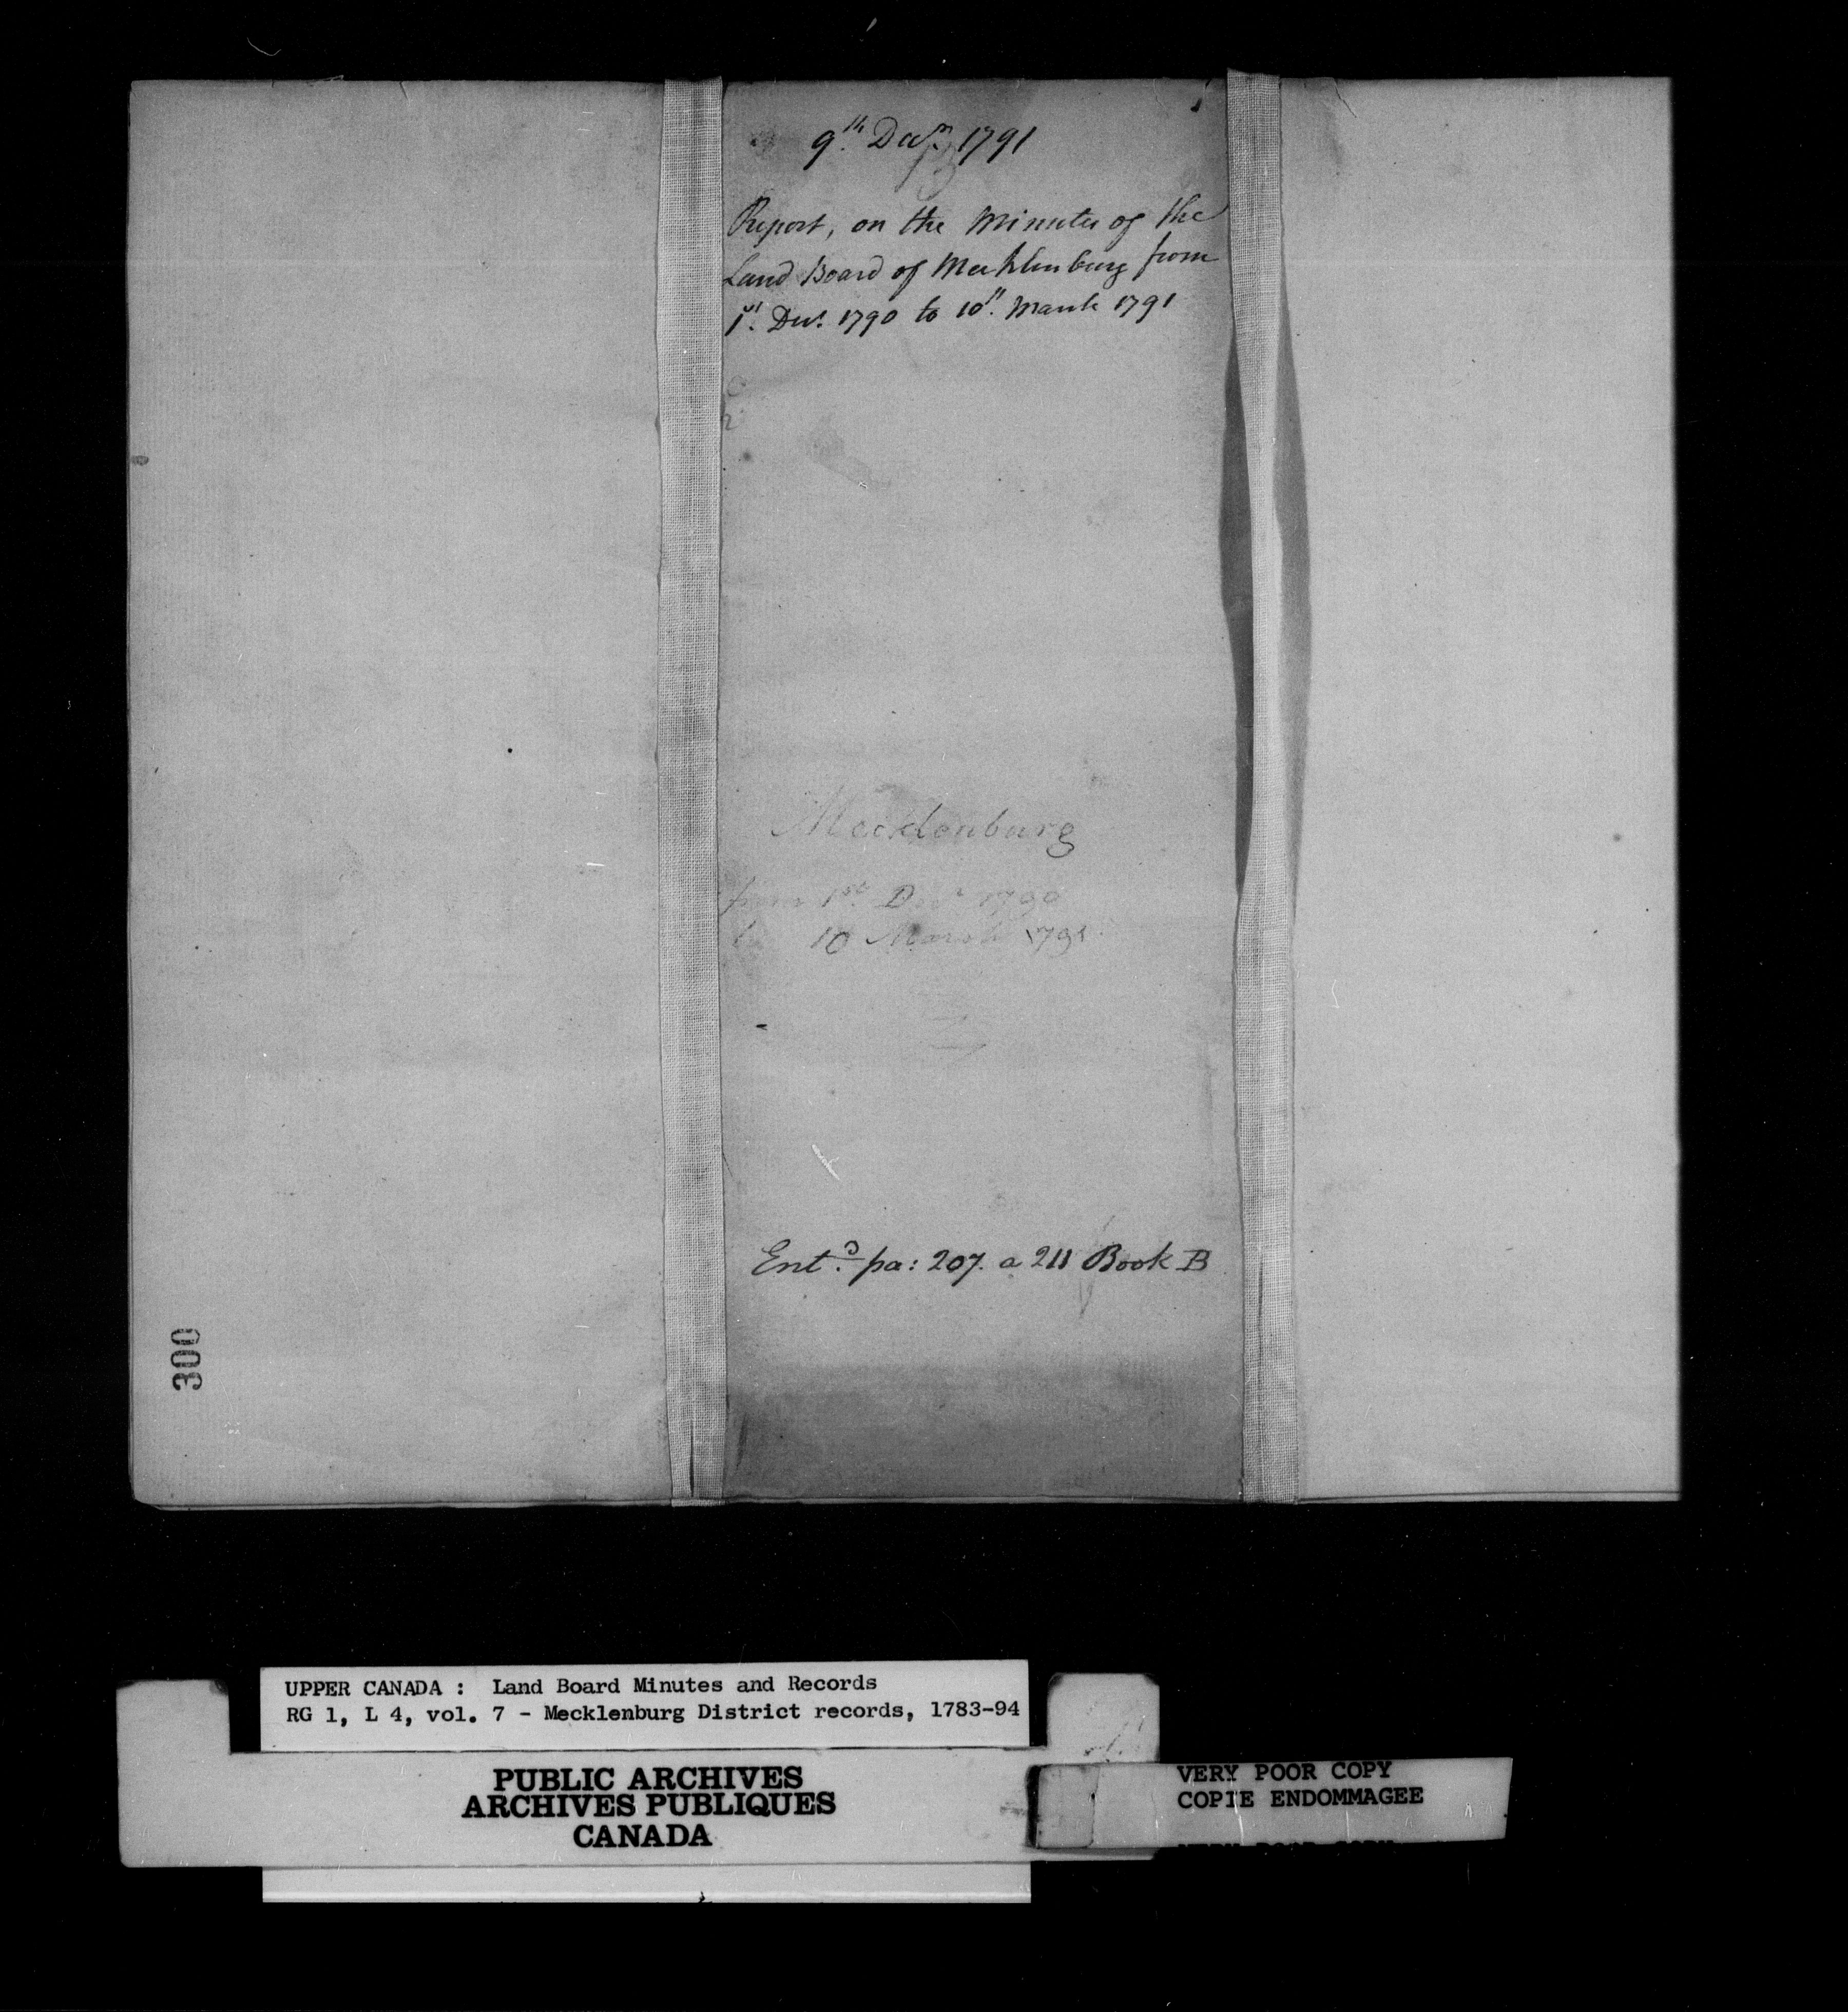 9th. Decr. 1791
Report, on the Minutes of the
Land Board of Mecklenburg from
1st. Decr. 1790 to 10th. March 1791
Mecklenburg
from 1st. Decr 1790
to 10 March 1791
Entd. pa: 207. a 211 Book B
300
UPPER CANADA : Land Board Minutes and Records
RG 1, L 4, vol. 7 - Mecklenburg District records, 1783-94
PUBLIC ARCHIVES
ARCHIVES PUBLIQUES
CANADA
VERY POOR COPY
COPIE ENDOMMAGEE